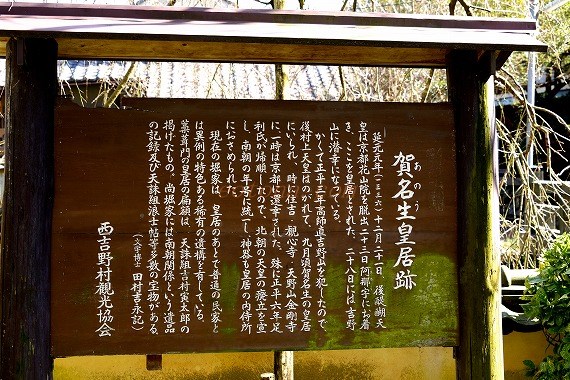 あのう
賀名生皇居跡
延元元年(一三三六)十二月二十一日、後醍醐天
皇は京都花山院を脱出、二十二日阿那宇にお着
き、ここを皇居とされた。二十八日には、吉野
山に潜幸になっている。
かくて正平三年高師直吉野山を犯したので、
後村上天皇はのがれて、九月頃賀名生の皇居
にいられ、時に住吉・観心寺・天野山金剛寺
に、一時は京都に還幸された。殊に正平六年足
利氏が帰順したので、北朝の天皇の廃立を宣
し、南朝の年号に統一し、神器を皇居の内侍所
におさめられた。
現在の堀家は、皇居のあとで普通の民家と
は異例の特色ある稀有の遺構を有している。
藁葺門の皇居の扁額は、天誅組吉村寅太郎の
掲げたもの。尚堀家には南朝関係という遺品
の記録及び天誅組浪士帖等多数の宝物がある。
(文学博士 田村吉永記)
西吉野村観光協会